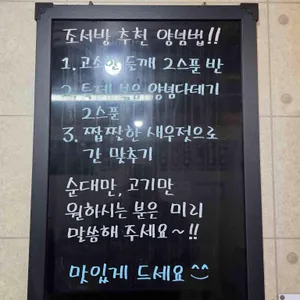 조서방 추천 양념법!!
1. 고소한 들깨 2스푼 반
2. 특제 볶은 양념다데기
2스푼
3. 짭짤한 새우젓으로
간 맞추기
순대만, 고기만
원하시는 분은 미리
말씀해 주세요~!!
맛있게 드세요^^